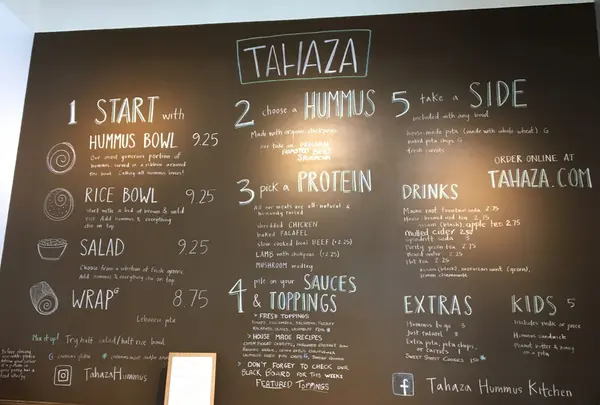 TAHAZA
1 START with
HUMMUS BOWL 9.25
Our most generous portion of
hummus, served in a
the bowl. Calling all hummus lovers!
RICE BOWL 9.25
Start with a bed of brown & wild
rice. Add hummus & everything
else on top
SALAD 9.25
Choose from a selection of fresh greens.
Add hummus & everything else on top
WRAP G 8.75
Lebanese pita
Mix it up! Try half salad/half rice bowl
Before placing
your order
TahazaHummus
2 choose a HUMMUS
Made with organic chickpeas
ORIGINAL
ROASTED BEET
SRIRACHA
3 pick a PROTEIN
All our meats are all-natural &
humanely raised
shredded CHICKEN
baked FALAFEL
slow cooked BEEF (+2.25)
LAMB with chickpeas (+2.25)
MUSHROOM medley
4 pile on your SAUCES
& TOPPINGS
> FRESH TOPPINGS
> HOUSE MADE RECIPES
> DON'T FORGET TO CHECK OUR
BLACK BOARD FOR THIS WEEKS
FEATURED TOPPINGS
5 take a SIDE
included with any bowl
house-made pita (made with whole wheat) G
baked pita chips G
fresh carrots
ORDER ONLINE AT
TAHAZA.COM
DRINKS
Maine root fountain soda 2.75
House-brewed iced tea 2.75
apple tea 2.75
mulled cider 2.50
Spindrift soda 3
Purity green tea 2.75
Boxed water 2.25
Hot tea 2.25
EXTRAS
Hummus to go 3
Just falafel 3
Extra pita, pita chips,
or carrots 1
SWEET STREET COOKIES
KIDS 5
Includes milk or juice
Hummus sandwich
Peanut butter & honey
on a pita
Tahaza Hummus Kitchen